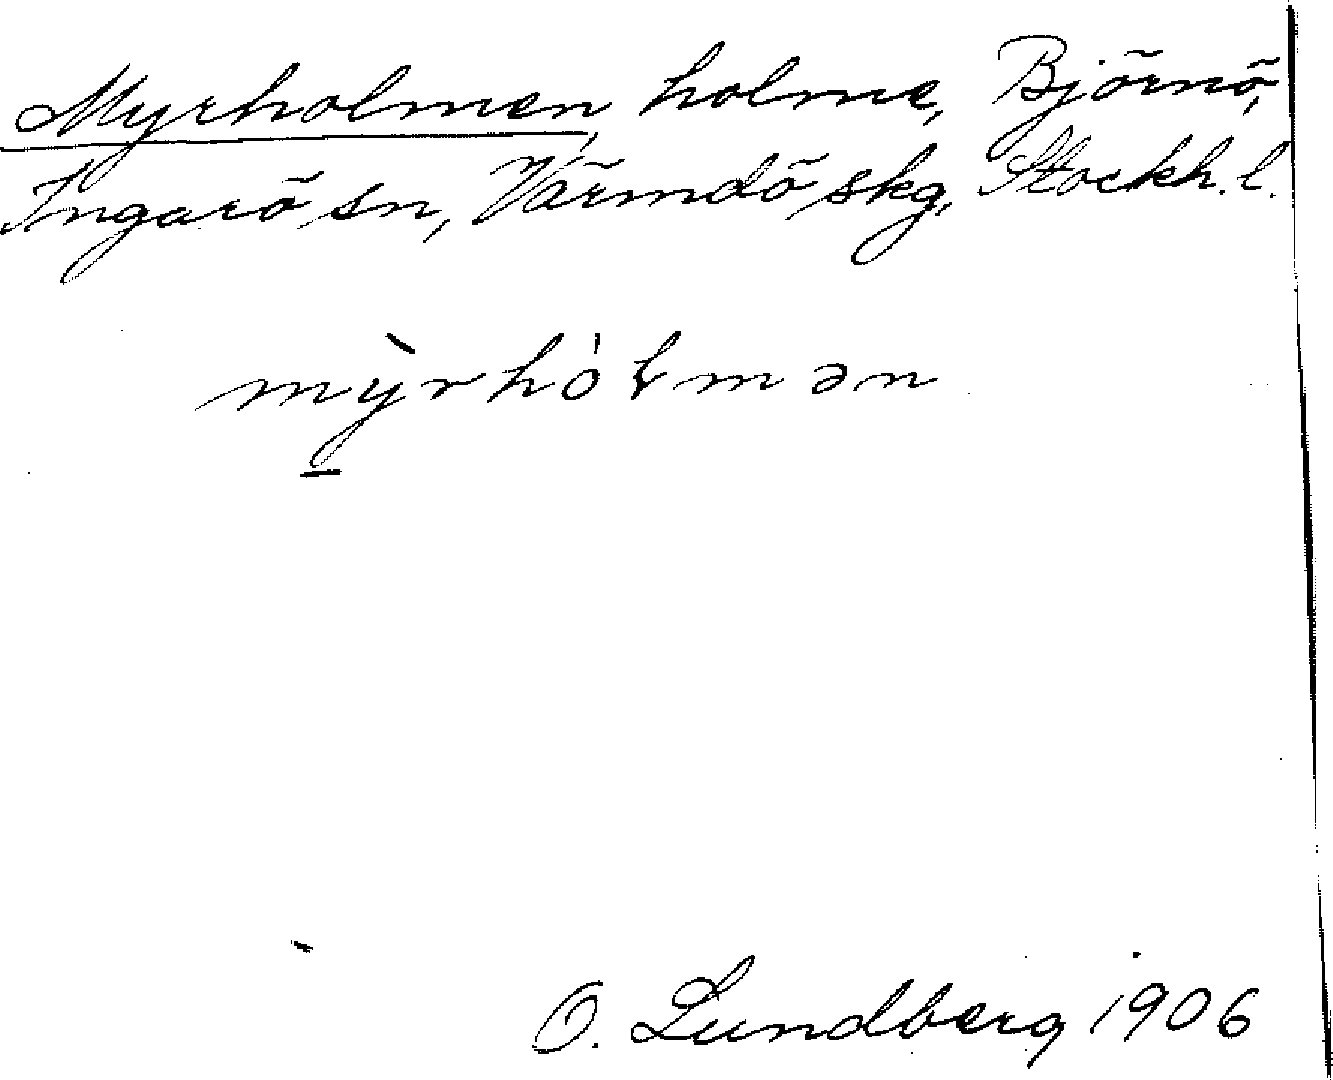 Myrholmen, holme, Björnö,
Ingarö sn, Värmdö skg, Stockh. l.
mỳrhóɫmən
O. Lundberg 1906